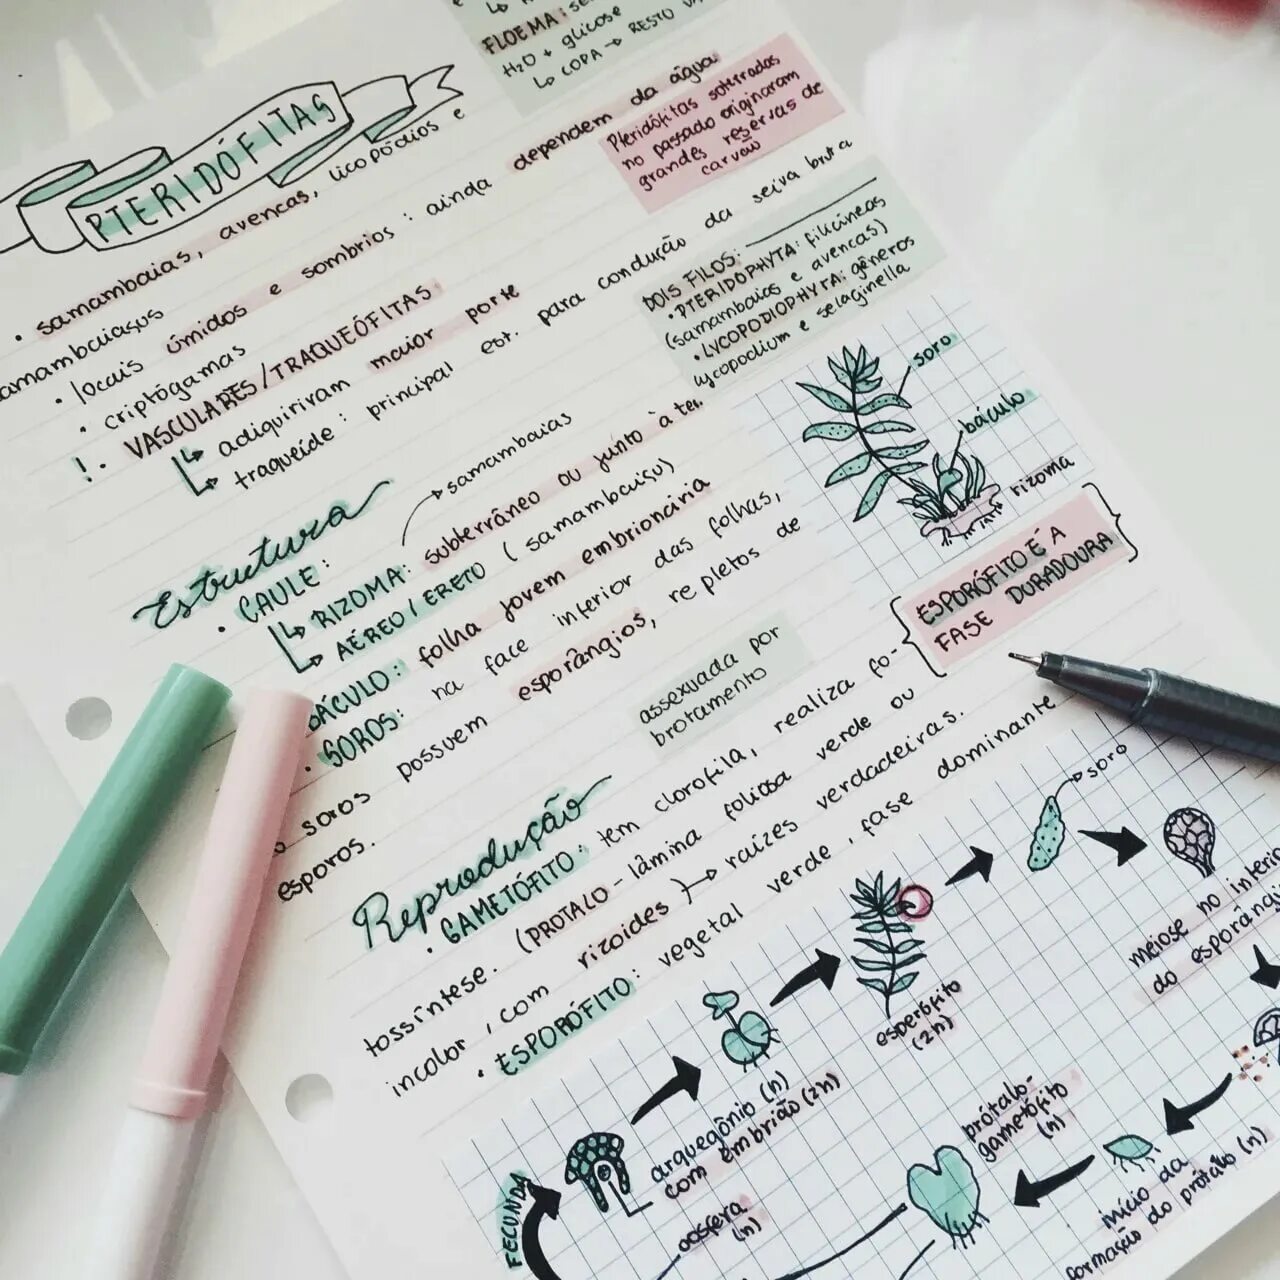 FLOEMA: se
H₂O + glicose
↳ COPA → RESTO
PTERIDÓFITAS
• samambaias, avencas, licopódios e
samambaiaçus
• locais úmidos e sombrios: ainda dependem da água
• criptógamas
! • VASCULARES/TRAQUEÓFITAS
↳ adquiriram maior porte
↳ traqueíde: principal est. para condução da seiva bruta
Pteridófitas soterradas
no passado originaram
grandes reservas de
carvão
DOIS FILOS:
• PTERIDOPHYTA: filicíneas
(samambaias e avencas)
• LYCOPODIOPHYTA: gêneros
lycopodium e selaginella
soro
báculo
rizoma
Estrutura
• CAULE:
→ samambaias
↳ RIZOMA: subterrâneo ou junto à ter.
↳ AÉREO/ERETO (samambaiaçu)
BÁCULO: folha jovem embrionária
• SOROS: na face inferior das folhas,
soros possuem esporângios, repletos de
esporos.
ESPORÓFITO É A
FASE DURADOURA
assexuada por
brotamento
Reprodução
• GAMETÓFITO: tem clorofila, realiza fo-
tossíntese. (PROTALO - lâmina foliosa verde ou
incolor, com rizoides) → raízes verdadeiras.
• ESPORÓFITO: vegetal verde, fase dominante
soro
meiose no interio
do esporângi
esperófito
(2n)
arquegônio (n)
com embrião (2n)
prótalo-
gametófito
(n)
início da
formação do prótalo (n)
oosfera
(n)
FECUNDA